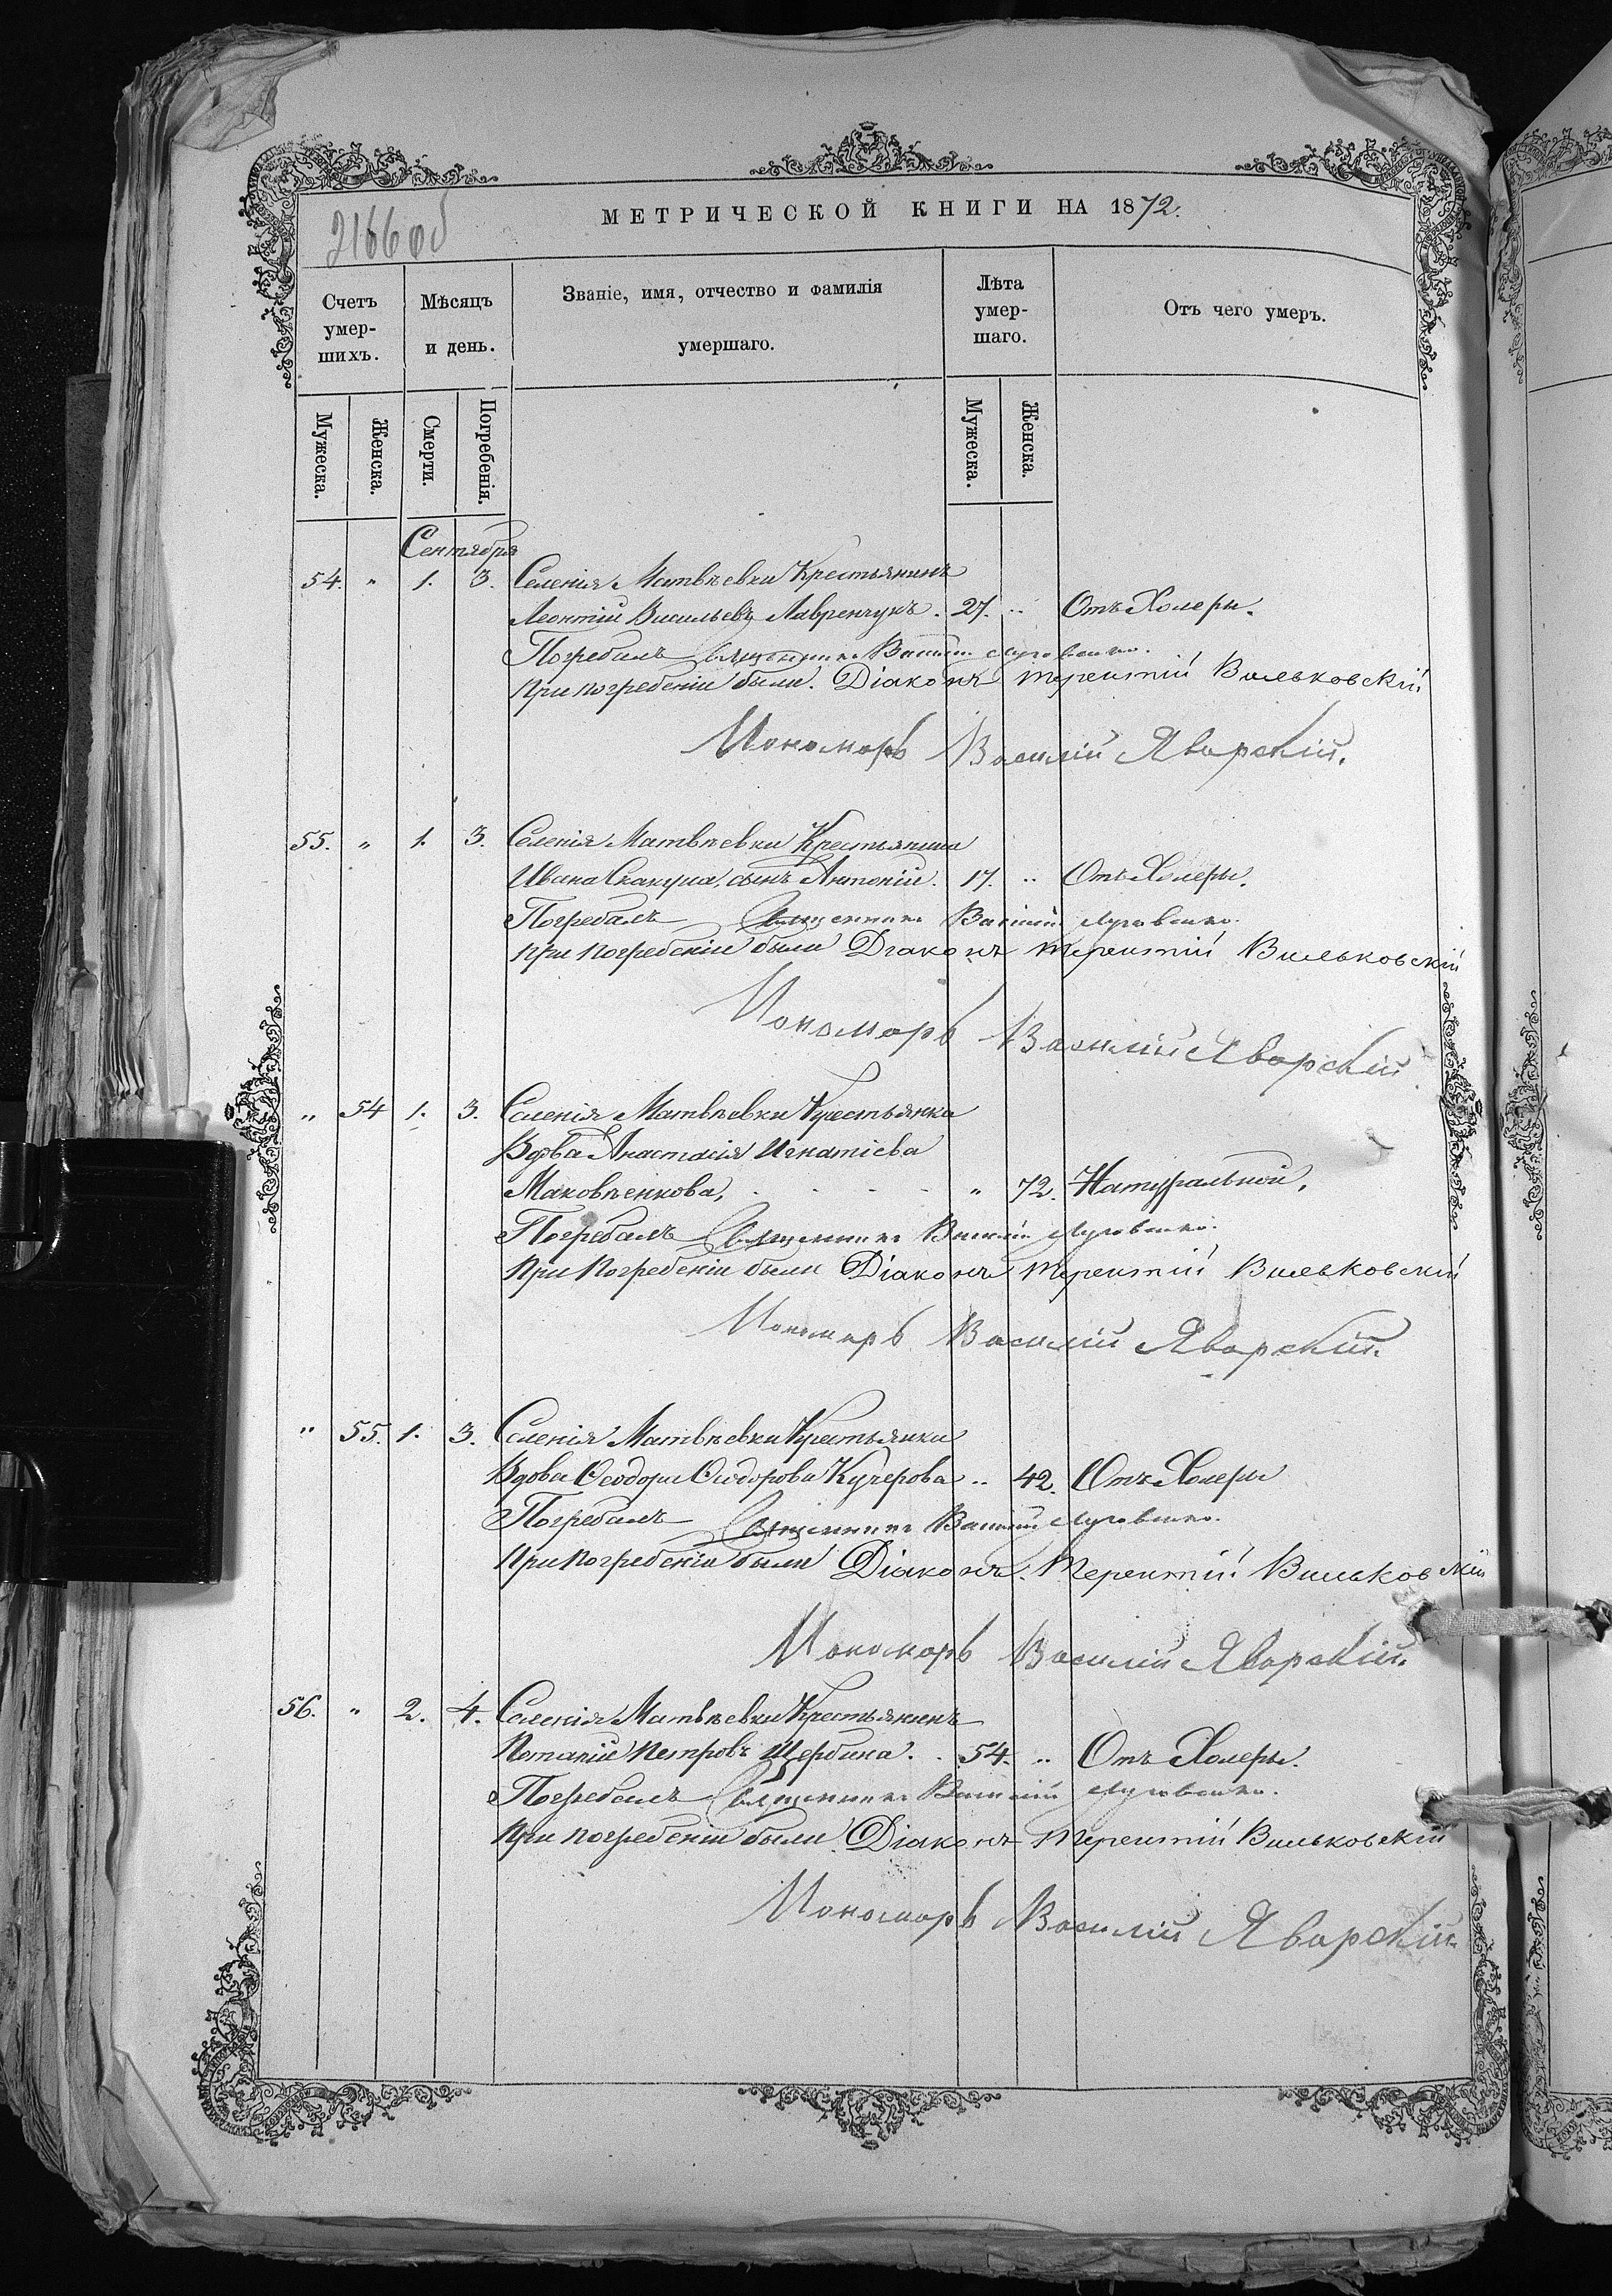 2166об
МЕТРИЧЕСКОЙ КНИГИ НА 1872.
Счетъ умер-шихъ. Мѣсяцъ и день. Званіе, имя, отчество и фамилія умершаго. Лѣта умер-шаго. Отъ чего умеръ.
Мужеска. Женска. Смерти. Погребенія. Мужеска. Женска.
Сентября
54. " 1. 3. Селенія Матвѣевки Крестьянинъ
Леонтій Васильевъ Лавренчукъ. 27. " Отъ Холеры.
Погребалъ Священникъ Василій
При погребеніи были. Діаконъ Терентій Вильковскій
Пономарь Василій Яворскій.
55. " 1. 3. Селенія Матвѣевки Крестьянина
Ивана Скакуна, сынъ Антоній. 17. " Отъ Холеры.
Погребалъ Священникъ Василій
При погребеніи были Діаконъ Терентій Вильковскій
Пономарь Василій Яворскій
" 54 1. 3. Селенія Матвѣевки Крестьянка
Вдова Анастасія Игнатіева
Маковѣенкова, " 72. Натуральной.
Погребалъ Священникъ Василій
При Погребеніи были Діаконъ Терентій Вильковскій
Пономарь Василій Яворскій.
" 55. 1. 3. Селенія Матвѣевки Крестьянка
Вдова Ѳеодора Сидорова Кучерова " 42. Отъ Холеры
Погребалъ Священникъ Василій
При погребеніи были Діаконъ. Терентій Вильковскій
Пономарь Василій Яворскій.
56. " 2. 4. Селенія Матвѣевки Крестьянинъ
Потапій Петровъ Щербина. 54. " Отъ Холеры.
Погребалъ Священникъ Василій
При погребеніи были. Діаконъ Терентій Вильковскій
Пономарь Василій Яворскій.